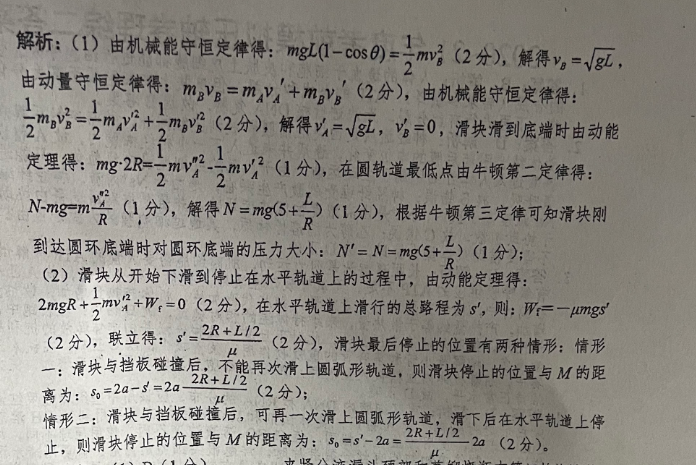 解析:(1) 由机械能守恒定律得: mgL(1-cosθ)=\frac{1}{2}mv_B^2 (2分), 解得v_B=\sqrt{gL},
由动量守恒定律得: m_Bv_B=m_Av_A'+m_Bv_B' (2分), 由机械能守恒定律得:
\frac{1}{2}m_Bv_B^2=\frac{1}{2}m_Av_A'^2+\frac{1}{2}m_Bv_B'^2 (2分), 解得v_A'=\sqrt{gL}, v_B'=0, 滑块滑到底端时由动能
定理得: mg·2R=\frac{1}{2}mv_A''^2-\frac{1}{2}mv_A'^2 (1分), 在圆轨道最低点由牛顿第二定律得:
N-mg=m\frac{v_A''^2}{R} (1分), 解得N=mg(5+\frac{L}{R}) (1分), 根据牛顿第三定律可知滑块刚
到达圆环底端时对圆环底端的压力大小: N'=N=mg(5+\frac{L}{R}) (1分);
(2) 滑块从开始下滑到停止在水平轨道上的过程中, 由动能定理得:
2mgR+\frac{1}{2}mv_A'^2+W_f=0 (2分), 在水平轨道上滑行的总路程为s', 则: W_f=-μmgs'
(2分), 联立得: s'=\frac{2R+L/2}{μ} (2分), 滑块最后停止的位置有两种情形: 情形
一: 滑块与挡板碰撞后, 不能再次滑上圆弧形轨道, 则滑块停止的位置与M的距
离为: s_0=2a-s'=2a-\frac{2R+L/2}{μ} (2分);
情形二: 滑块与挡板碰撞后, 可再一次滑上圆弧形轨道, 滑下后在水平轨道上停
止, 则滑块停止的位置与M的距离为: s_0=s'-2a=\frac{2R+L/2}{μ}-2a (2分)。